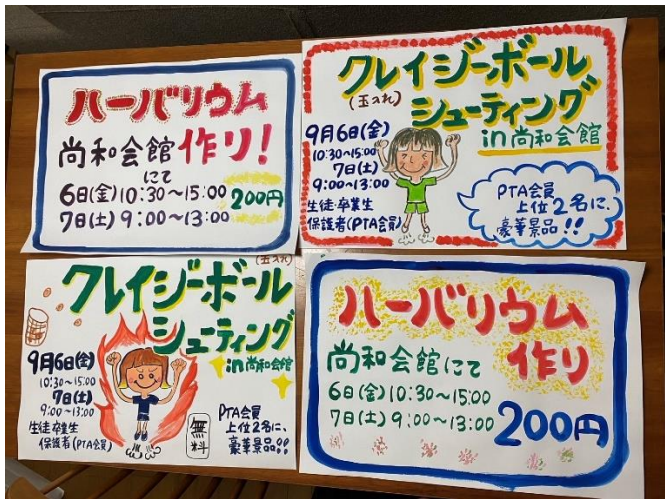 ハーバリウム
作り!
尚和会館
にて
6日(金)10:30~15:00
7日(土)9:00~13:00
200円
クレイジーボール
(玉入れ)
シューティング
in尚和会館
9月6日(金)
10:30~15:00
7日(土)
9:00~13:00
生徒・卒業生
保護者(PTA会員)
PTA会員
上位2名に、
豪華景品!!
(玉入れ)
クレイジーボール
シューティング
in尚和会館
9月6日(金)
10:30~15:00
7日(土)
9:00~13:00
生徒・卒業生
保護者(PTA会員)
無料
PTA会員
上位2名に、
豪華景品!!
ハーバリウム
作り
尚和会館にて
6日(金)10:30~15:00
7日(土)9:00~13:00
200円